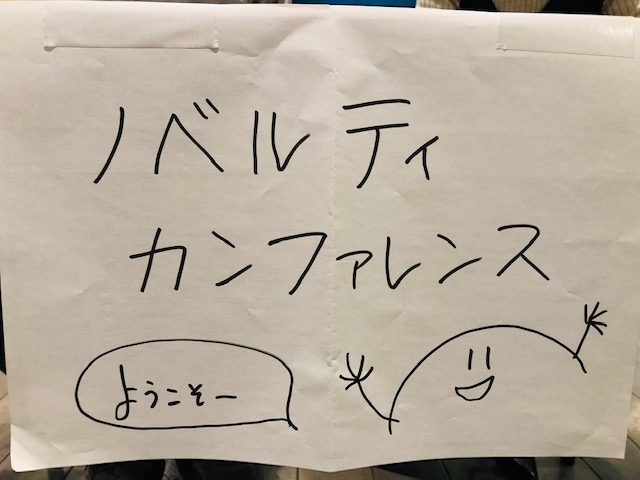 ノベルティ
カンファレンス
ようこそー